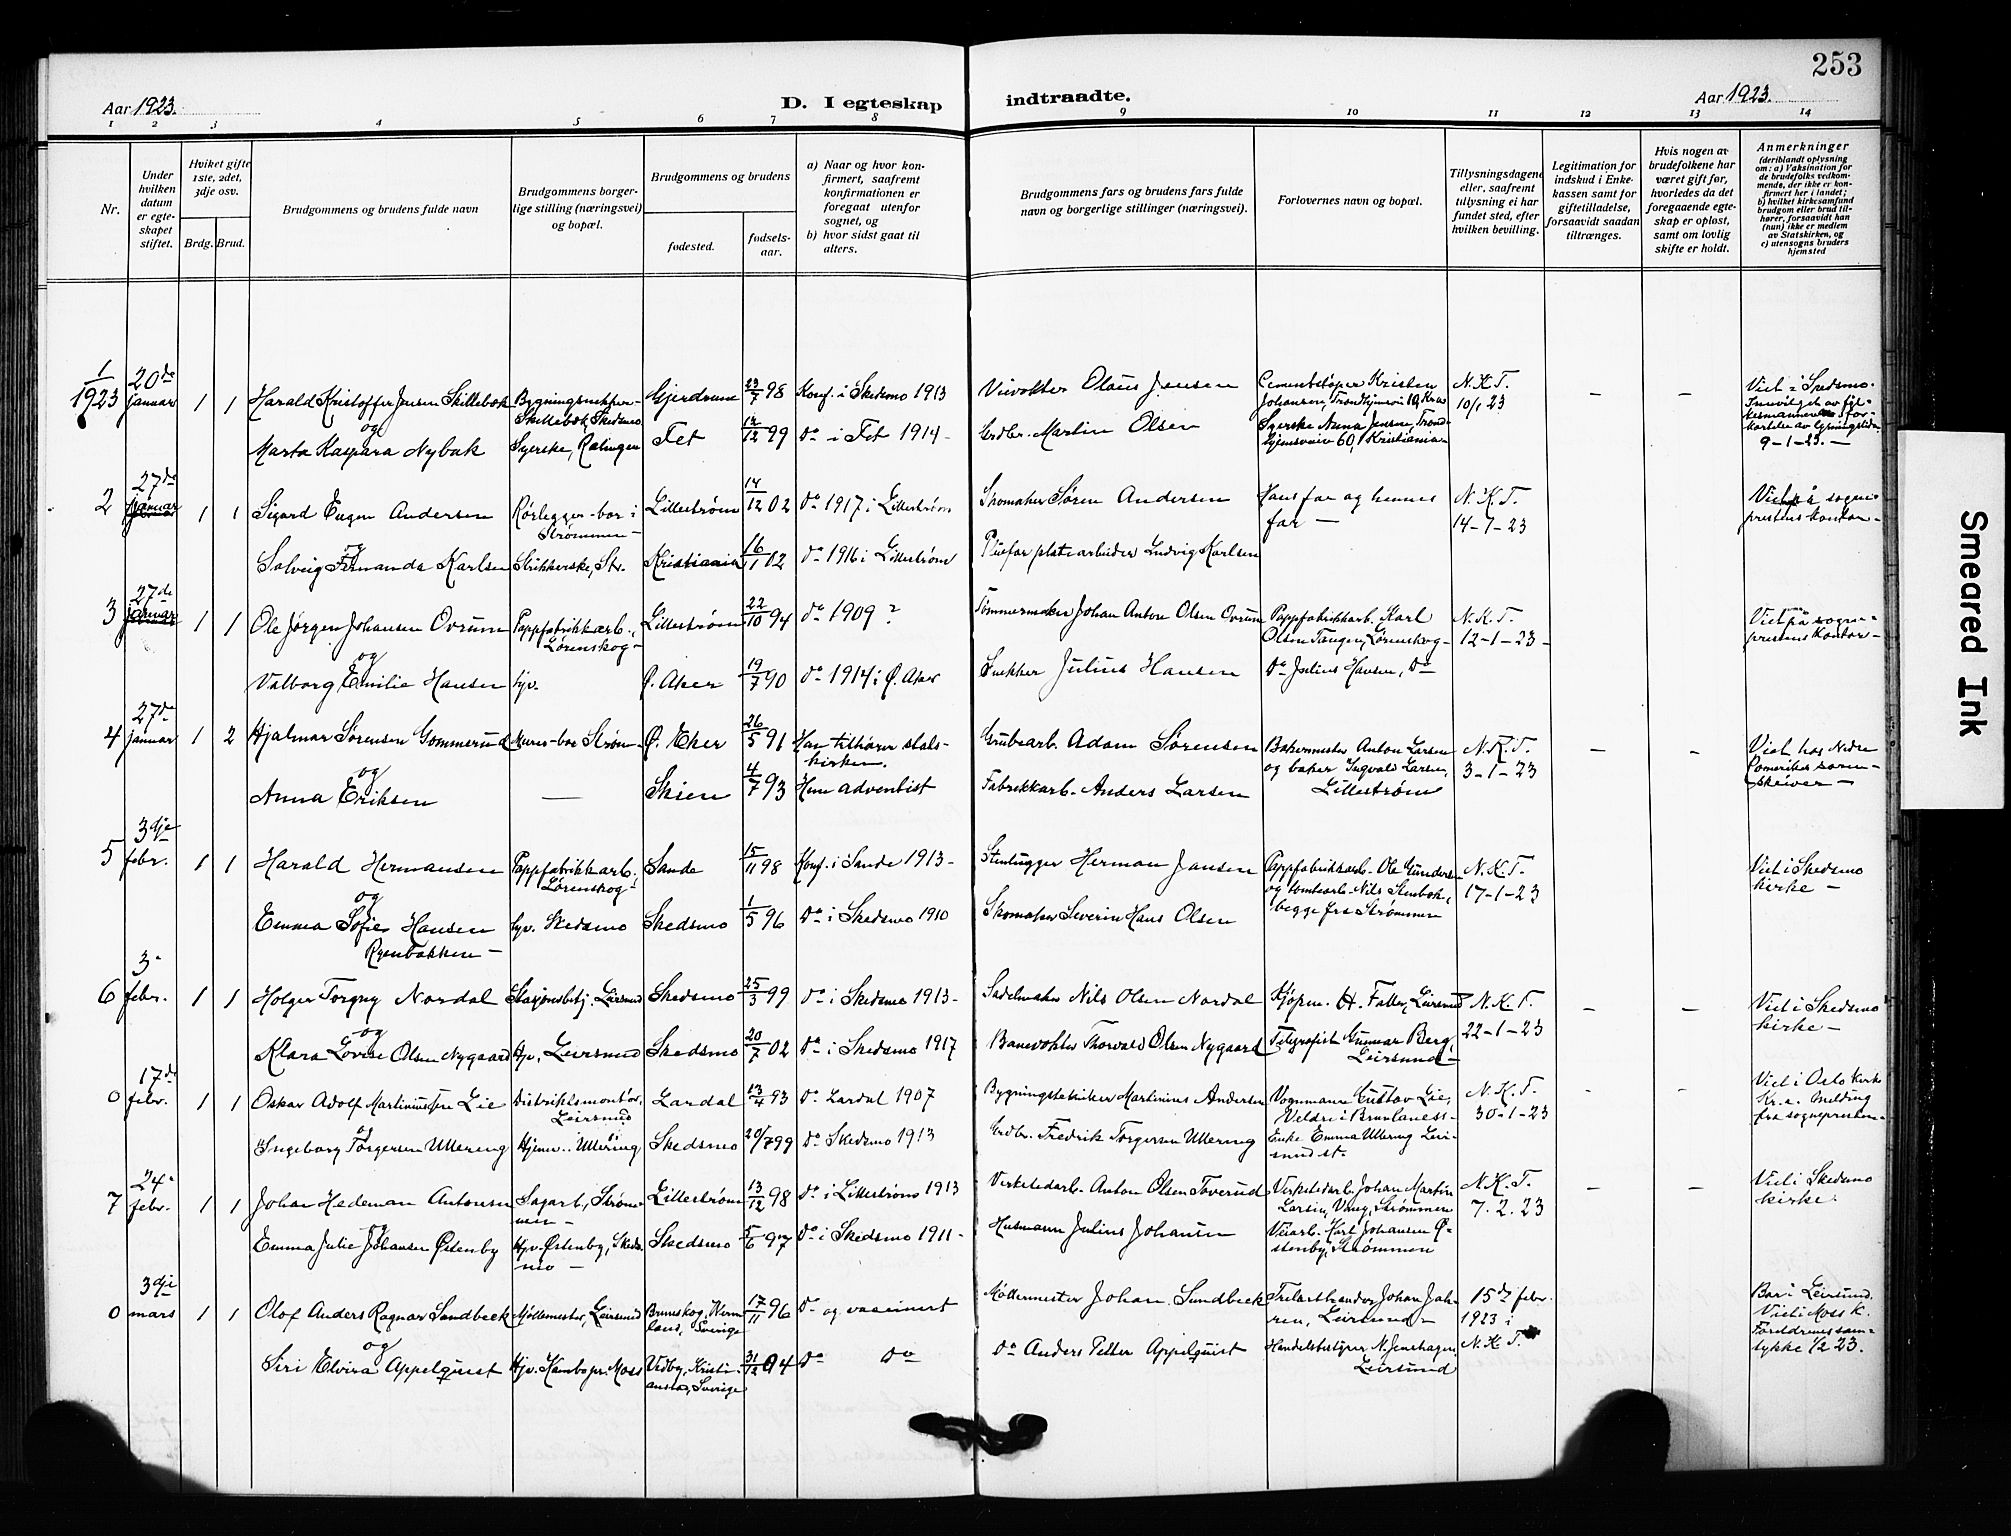 253
Aar 1923.
D. I egteskap
indtraadte.
Aar 1923.
1 2 3 4 5 6 7 8 9 10 11 12 13 14
Nr.
Under
hvilken
datum
er egte-
skapet
stiftet.
Hvilket gifte
1ste, 2det,
3dje osv.
Brdg. Brud.
Brudgommens og brudens fulde navn
Brudgommens borger-
lige stilling (næringsvei)
og bopæl.
Brudgommens og brudens
fødested.
fødsels-
aar.
a) Naar og hvor kon-
firmert, saafremt
konfirmationen er
foregaat utenfor
sognet, og
b) hvor sidst gaat til
alters.
Brudgommens fars og brudens fars fulde
navn og borgerlige stillinger (næringsvei).
Forlovernes navn og bopæl.
Tillysningsdagene
eller, saafremt
tillysning ei har
fundet sted, efter
hvilken bevilling.
Legitimation for
indskud i Enke-
kassen samt for
giftetilladelse,
forsaavidt saadan
tiltrænges.
Hvis nogen av
brudefolkene har
været gift før,
hvorledes da det
foregaaende egte-
skap er opløst,
samt om lovlig
skifte er holdt.
Anmerkninger
(deriblandt oplysning
om: a) Vaksination for
de brudefolks vedkom-
mende, der ikke er kon-
firmert her i landet;
b) hvilket kirkesamfund
brudgom eller brud til-
hører, forsaavidt han
(hun) ikke er medlem
av Statskirken, og
c) utensogns bruders
hjemsted
1/1923 20de januar 1 1 Harald Kristoffer Jensen Skillebæk Bygningssnekker Skillebæk, Skedsmo Gjerdrum 23/7 98 Konf. i Skedsmo 1913 Veivokter Olaus Jensen Cementstøper Kristen Johansen, Trondhjemsvei 19, Kra. N.K.T. 10/1 23 – – Viet i Skedsmo.
og
Marta Kaspara Nybak Syerske, Rælingen Fet 12/12 99 do i Fet 1914 – Grdbr. Martin Olsen Syerske Anna Jensen, Trond-hjemsveien 60, Kristiania 9-1-23. –
2 27de januar 1 1 Sigurd Eugen Andersen Rørlegger bor i Strømmen – Lillestrøm 14/12 02 do 1917 i Lillestrøm Skomaker Søren Andersen Hans far og hennes far – N.K.T. 14-1-23 Viet på sogne-prestens kontor –
og
Solveig Fernanda Karlsen Strikkerske, Str. Kristiania 16/1 02 do 1916 i Lillestrøm platearbeider Ludvig Karlsen
3 27de januar 1 1 Ole Jørgen Johansen Ovrum Pappfabrikkarb., Lørenskog – Lillestrøm 22/10 94 do 1909 ? Tømmermaker Johan Anton Olsen Ovrum Pappfabrikkarb. Karl Olsen Tangen, Lørenskog – N.K.T. 12-1-23 – Viet på sogne-prestens kontor –
og
Valborg Emilie Hansen hjv. Ø. Aker 19/7 90 do 1914 i Ø. Aker Snekker Julius Hansen do Julius Hansen, do
4 27de januar 1 2 Hjalmar Sørensen Gommerud Murer – bor Strøm. Ø. Eker 26/5 91 Han tilhører stats-kirken. Grubearb. Adam Sørensen Bakermester Anton Larsen og baker Ingvald Larsen, Lillestrøm N.K.T. 3-1-23 – – Viet hos Nedre Romerikes soren-skriver –
og
Anna Eriksen — Skien 4/7 93 Hun adventist Fabrikkarb. Anders Larsen
5 3dje febr. 1 1 Harald Hermansen Pappfabrikkarb. Lørenskog – Sande 15/11 98 Konf. i Sande 1913 – Stenhugger Herman Jansen Pappfabrikkarb. Ole Gundersen og tomtearb. Nils Stenbok, begge fra Strømmen N.K.T. 17-1-23 Viet i Skedsmo kirke –
og
Emma Sofie Hansen Ryenbakken – hjv. Skedsmo Skedsmo 1/5 96 do i Skedsmo 1910 Skomaker Severin Hans Olsen
6 3. febr. 1 1 Holger Torgny Nordal Stasjonsbetj. Leirsund Skedsmo 25/3 99 do i Skedsmo 1913 – Sadelmaker Nils Olsen Nordal Kjøpm. H. Faller, Leirsund N.K.T. 22-1-23 – – Viet i Skedsmo kirke –
og
Klara Lovise Olsen Nygaard hjv. Leirsund Skedsmo 20/7 02 do i Skedsmo 1917 Banevokter Thorvald Olsen Nygaard Telegrafist Gunnar Berg Leirsund –
0 17de febr. 1 1 Oskar Adolf Martiniussen Lie Distriktsmontør, Leirsund Lardal 13/4 93 do Lardal 1907 Bygningstekniker Martinius Andersen Vognmann Gustav Lie, Veldre i Brunlanes – N.K.T. 30-1-23 – – Viet i Oslo kirke Kr.a. Melding fra sognepresten –
og
Ingeborg Torgersen Ullering Hjemv. Ullering Skedsmo 20/7 99 do Skedsmo 1913 Grdbr. Fredrik Torgersen Ullering Enke Emma Ullering Leir-sund st.
7 24. febr. 1 1 Johan Hedeman Antonsen Sagarb., Strøm-men – Lillestrøm 13/12 98 do i Lillestrøm 1913 Verkstedarb. Anton Olsen Toverud Verkstedarb. Johan Martin Larsen, Strømmen N.K.T. 7.2.23 – – Viet i Skedsmo kirke.
og
Emma Julie Johansen Østenby Hjv. Østenby, Skeds-mo – Skedsmo 5/6 97 do i Skedsmo 1911 – Husmann Julius Johansen Veiarb. Karl Johansen Ø-stenby, Strømmen
0 3dje mars 1 1 Olof Anders Ragnar Sundbeck Møllemester, Leirsund Brunskog, Verm-land, Sverige 17/11 96 do og vaccinert Møllermester Johan Sundbeck Trelasthandler Johan Joh-sen, Leirsund – 15de febr. 1923 i N.K.T. Bor i Leirsund. Viet i Moss k. Foreldrenes sam-tykke 1/2 23.
og
Siri Elvira Appelquist Hjv. Kambo pr. Moss Vedby, Kristi-anstad, Sverige 31/12 04 do do do Anders Petter Appelquist Handelsbestyrer N. Jenshagen Leirsund
Smeared Ink